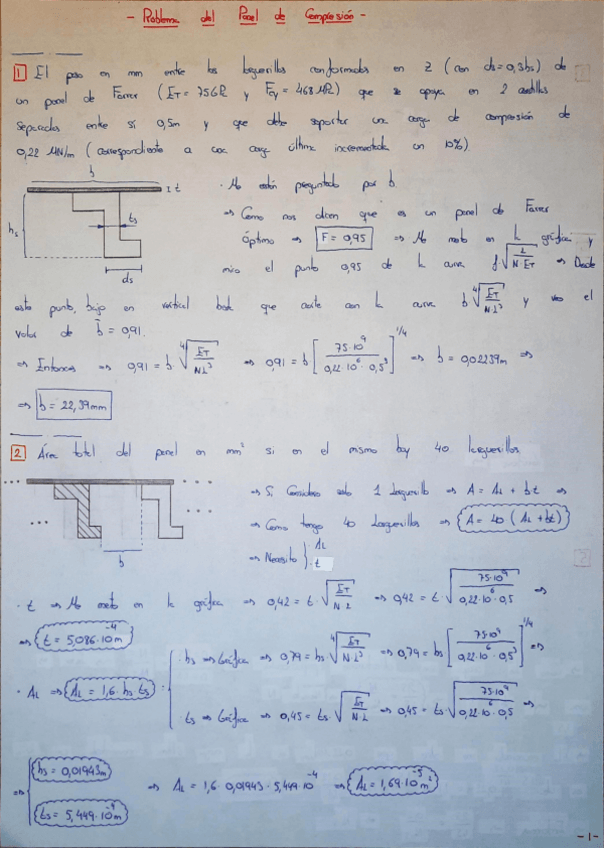 - Problema del Panel de Compresión -
1 El paso en mm entre los larguerillos conformados en Z (con ds = 0,3hs) de
un panel de Farrar (ET = 75GPa y Fcy = 468 MPa) que se apoya en 2 costillas
separadas entre sí 0,5m y que debe soportar una carga de compresión de
0,22 MN/m (correspondiente a una carga última incrementada un 10%)
b
t
hs
ts
ds
· Me están preguntado por b
⇒ Como nos dicen que es un panel de Farrar
óptimo ⇒ F = 0,95 ⇒ Me meto en la gráfica y
miro el punto 0,95 de la curva f√(L/(N·ET)) ⇒ Desde
este punto, bajo en vertical hasta que corte con la curva b ⁴√(ET/(NL³)) y veo el
valor de b̄ = 0,91.
⇒ Entonces ⇒ 0,91 = b ⁴√(ET/(NL³)) ⇒ 0,91 = b [75·10⁹/(0,22·10⁶·0,5³)]^1/4 ⇒ b = 0,02239m ⇒
⇒ b = 22,39mm
2 Área total del panel en mm² si en el mismo hay 40 larguerillos
b
⇒ Si considero solo 1 larguerillo ⇒ A = AL + bt ⇒
⇒ Como tengo 40 larguerillos ⇒ A = 40 (AL + bt)
⇒ Necesito } AL
t
· t ⇒ Me meto en la gráfica ⇒ 0,42 = t·√(ET/(N·L)) ⇒ 0,42 = t·√(75·10⁹/(0,22·10⁶·0,5)) ⇒
⇒ t = 5,086·10⁻⁴m
· AL ⇒ AL = 1,6·hs·ts :
· hs ⇒ Gráfica ⇒ 0,79 = hs ⁴√(ET/(N·L³)) ⇒ 0,79 = hs [75·10⁹/(0,22·10⁶·0,5³)]^1/4 ⇒
· ts ⇒ Gráfica ⇒ 0,45 = ts·√(ET/(N·L)) ⇒ 0,45 = ts·√(75·10⁹/(0,22·10⁶·0,5)) ⇒
⇒ hs = 0,01943m
ts = 5,449·10⁻⁴m
⇒ AL = 1,6·0,01943·5,449·10⁻⁴ ⇒ AL = 1,69·10⁻⁵m²
-1-